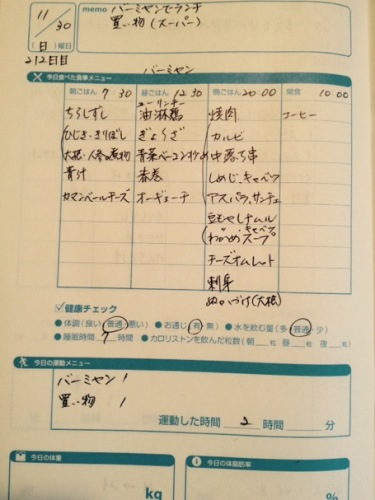 11/30
(日)曜日
memo バーミヤンでランチ
買い物(スーパー)
212日目
今日食べた食事メニュー
バーミヤン
朝ごはん 7:30 昼ごはん 12:30 晩ごはん 20:00 間食 10:00
ちらしずし
ひじき・きりぼし
大根・人参の煮物
青汁
カマンベールチーズ
ユーリンチー
油淋鶏
ぎょーざ
青菜ベーコンいため
春巻
オーギョーチ
焼肉
カルビ
中落ち串
しめじ・キャベツ
アスパラ、サンチュ
豆もやしナムル
わかめ・キャベツスープ
チーズオムレット
刺身
ぬかづけ(大根)
コーヒー
健康チェック
●体調(良い・普通・悪い) ●お通じ(有・無) ●水を飲む量(多・普通・少)
●睡眠時間 7 時間 ●カロリストンを飲んだ粒数(朝 粒 昼 粒 夜 粒)
今日の運動メニュー
バーミヤン 1
買い物 1
運動した時間 2 時間 分
今日の体重
kg
今日の体脂肪率
%